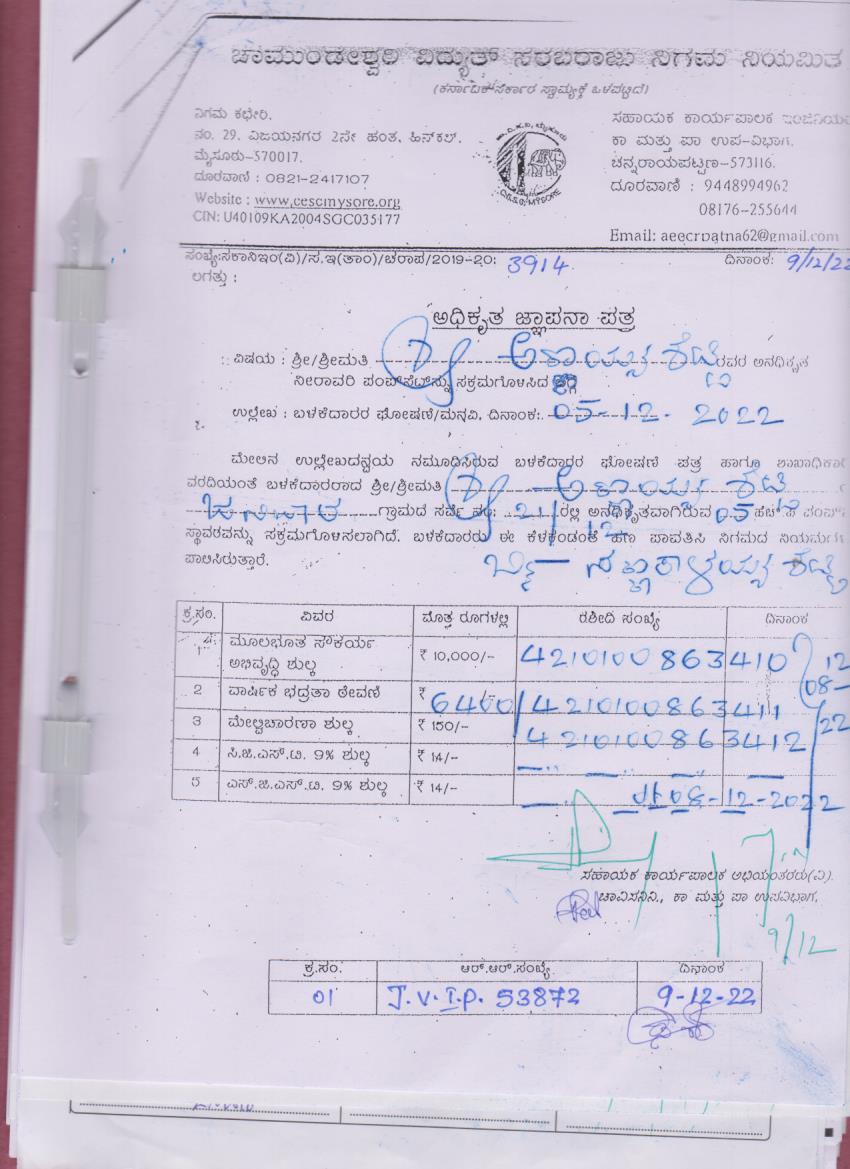 ಚಾಮುಂಡೇಶ್ವರಿ ವಿದ್ಯುತ್ ಸರಬರಾಜು ನಿಗಮ ನಿಯಮಿತ
(ಕರ್ನಾಟಕ ಸರ್ಕಾರ ಸ್ವಾಮ್ಯಕ್ಕೆ ಒಳಪಟ್ಟಿದೆ)
ನಿಗಮ ಕಛೇರಿ.
ನಂ. 29, ವಿಜಯನಗರ 2ನೇ ಹಂತ, ಹಿನ್‌ಕಲ್.
ಮೈಸೂರು-570017.
ದೂರವಾಣಿ : 0821-2417107
Website : www.cescmysore.org
CIN: U40109KA2004SGC035177
ಸಹಾಯಕ ಕಾರ್ಯಪಾಲಕ ಇಂಜಿನಿಯ
ಕಾ ಮತ್ತು ಪಾ ಉಪ-ವಿಭಾಗ,
ಚನ್ನರಾಯಪಟ್ಟಣ-573116.
ದೂರವಾಣಿ : 9448994962
08176-255644
Email: aeecrpatna62@gmail.com
ಸಂಖ್ಯೆ:ಸಕಾನಿಇಂ(ವಿ)/ಸ.ಇ(ತಾಂ)/ಚರಾಪ/2019-20: 3914 ದಿನಾಂಕ: 9/12/22
ಲಗತ್ತು :
ಅಧಿಕೃತ ಜ್ಞಾಪನಾ ಪತ್ರ
ವಿಷಯ : ಶ್ರೀ/ಶ್ರೀಮತಿ ಶೆಟ್ಟಿ ರವರ ಅನಧಿಕೃತ
ನೀರಾವರಿ ಪಂಪ್‌ಸೆಟ್‌ನ್ನು ಸಕ್ರಮಗೊಳಿಸಿದ ಬಗ್ಗೆ
ಉಲ್ಲೇಖ : ಬಳಕೆದಾರರ ಘೋಷಣೆ/ಮನವಿ, ದಿನಾಂಕ: 05-12-2022
ಮೇಲಿನ ಉಲ್ಲೇಖದನ್ವಯ ನಮೂದಿಸಿರುವ ಬಳಕೆದಾರರ ಘೋಷಣೆ ಪತ್ರ ಹಾಗೂ ಶಾಖಾಧಿಕಾರಿ
ವರದಿಯಂತೆ ಬಳಕೆದಾರರಾದ ಶ್ರೀ/ಶ್ರೀಮತಿ ಶೆಟ್ಟಿ
ಗ್ರಾಮದ ಸರ್ವೆ ನಂ: 21/12 ರಲ್ಲಿ ಅನಧಿಕೃತವಾಗಿರುವ 05 ಹೆಚ್.ಪಿ ಪಂಪ್
ಸ್ಥಾವರವನ್ನು ಸಕ್ರಮಗೊಳಿಸಲಾಗಿದೆ. ಬಳಕೆದಾರರು ಈ ಕೆಳಕಂಡಂತೆ ಹಣ ಪಾವತಿಸಿ ನಿಗಮದ
ಪಾಲಿಸಿರುತ್ತಾರೆ.
ಕ್ರ.ಸಂ. ವಿವರ ಮೊತ್ತ ರೂಗಳಲ್ಲಿ ರಶೀದಿ ಸಂಖ್ಯೆ ದಿನಾಂಕ
1 ಮೂಲಭೂತ ಸೌಕರ್ಯ ಅಭಿವೃದ್ಧಿ ಶುಲ್ಕ ₹ 10,000/- 4210100863410
2 ವಾರ್ಷಿಕ ಭದ್ರತಾ ಠೇವಣಿ ₹ 6400/- 4210100863411
3 ಮೇಲ್ವಿಚಾರಣಾ ಶುಲ್ಕ ₹ 150/- 4210100863412
4 ಸಿ.ಜಿ.ಎಸ್.ಟಿ. 9% ಶುಲ್ಕ ₹ 14/-
5 ಎಸ್.ಜಿ.ಎಸ್.ಟಿ. 9% ಶುಲ್ಕ ₹ 14/- 08-12-2022
ಸಹಾಯಕ ಕಾರ್ಯಪಾಲಕ ಅಭಿಯಂತರರು(ವಿ).
ಚಾವಿಸನಿನಿ., ಕಾ ಮತ್ತು ಪಾ ಉಪವಿಭಾಗ,
9/12
ಕ್ರ.ಸಂ. ಆರ್.ಆರ್.ಸಂಖ್ಯೆ ದಿನಾಂಕ
01 J.V.I.P. 53872 9-12-22